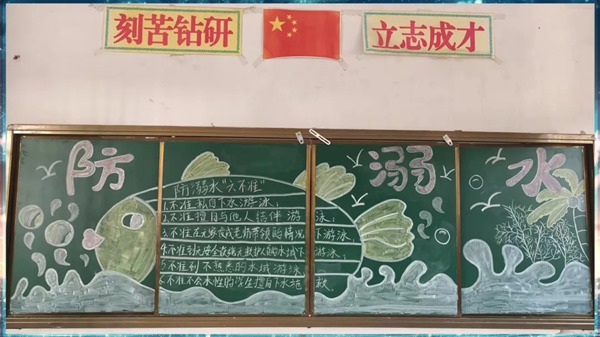 刻苦钻研
立志成才
防溺水
防溺水"六不准"
1.不准私自下水游泳、
2.不准擅自与他人结伴游泳、
3.不准在无家长或老师带领的情况下游泳、
4.不准到无安全设施无救护人的水域下游泳、
5.不准到不熟悉的水域游泳
6.不准不会水性的学生擅自下水施救